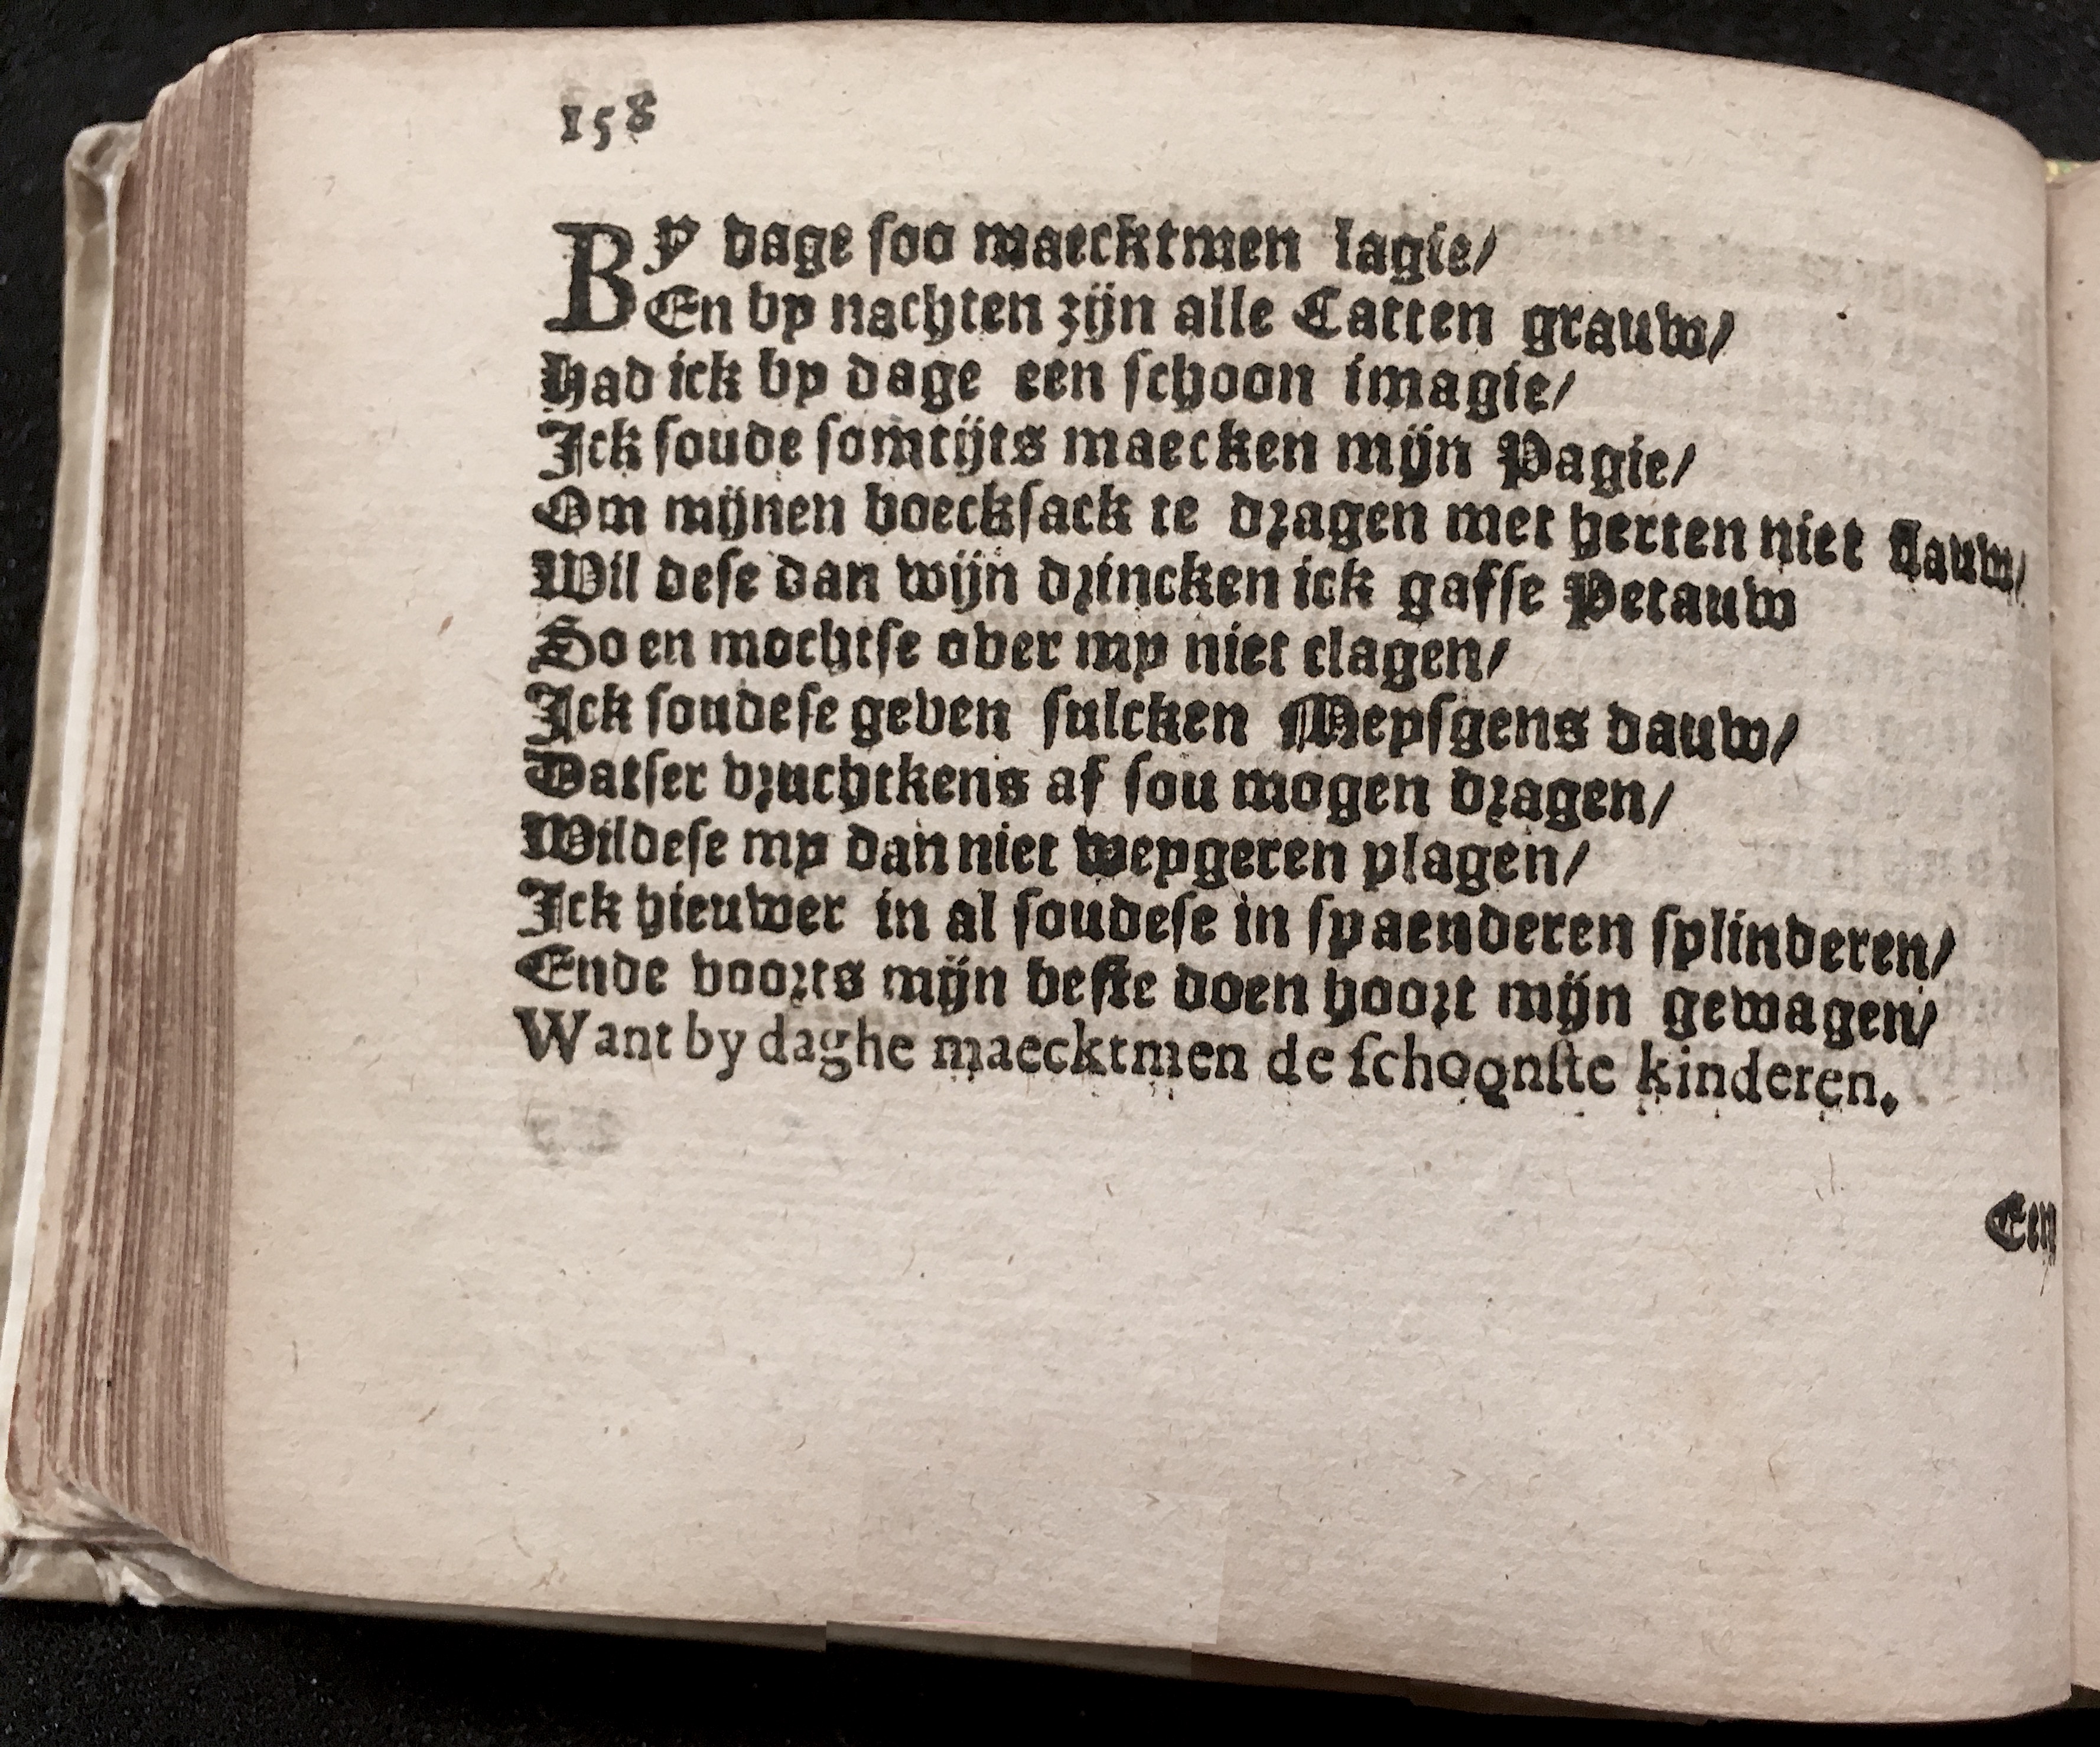 158
By dage soo maecktmen lagie/
En by nachten zijn alle Catten grauw/
Had ick by dage een schoon imagie/
Ick soude somtijts maecken mijn Pagie/
Om mijnen boecksack te dragen met herten niet flauw/
Wil dese dan wijn drincken ick gafse Petauw
So en mochtse over my niet clagen/
Ick soudese geven sulcken Meysgens dauw/
Datser vruchtkens af sou mogen dragen/
Wildese my dan niet weygeren plagen/
Ick hieuwer in al soudese in spaenderen splinderen/
Ende voorts mijn beste doen hoort mijn gewagen/
Want by daghe maecktmen de schoonste kinderen.
Een